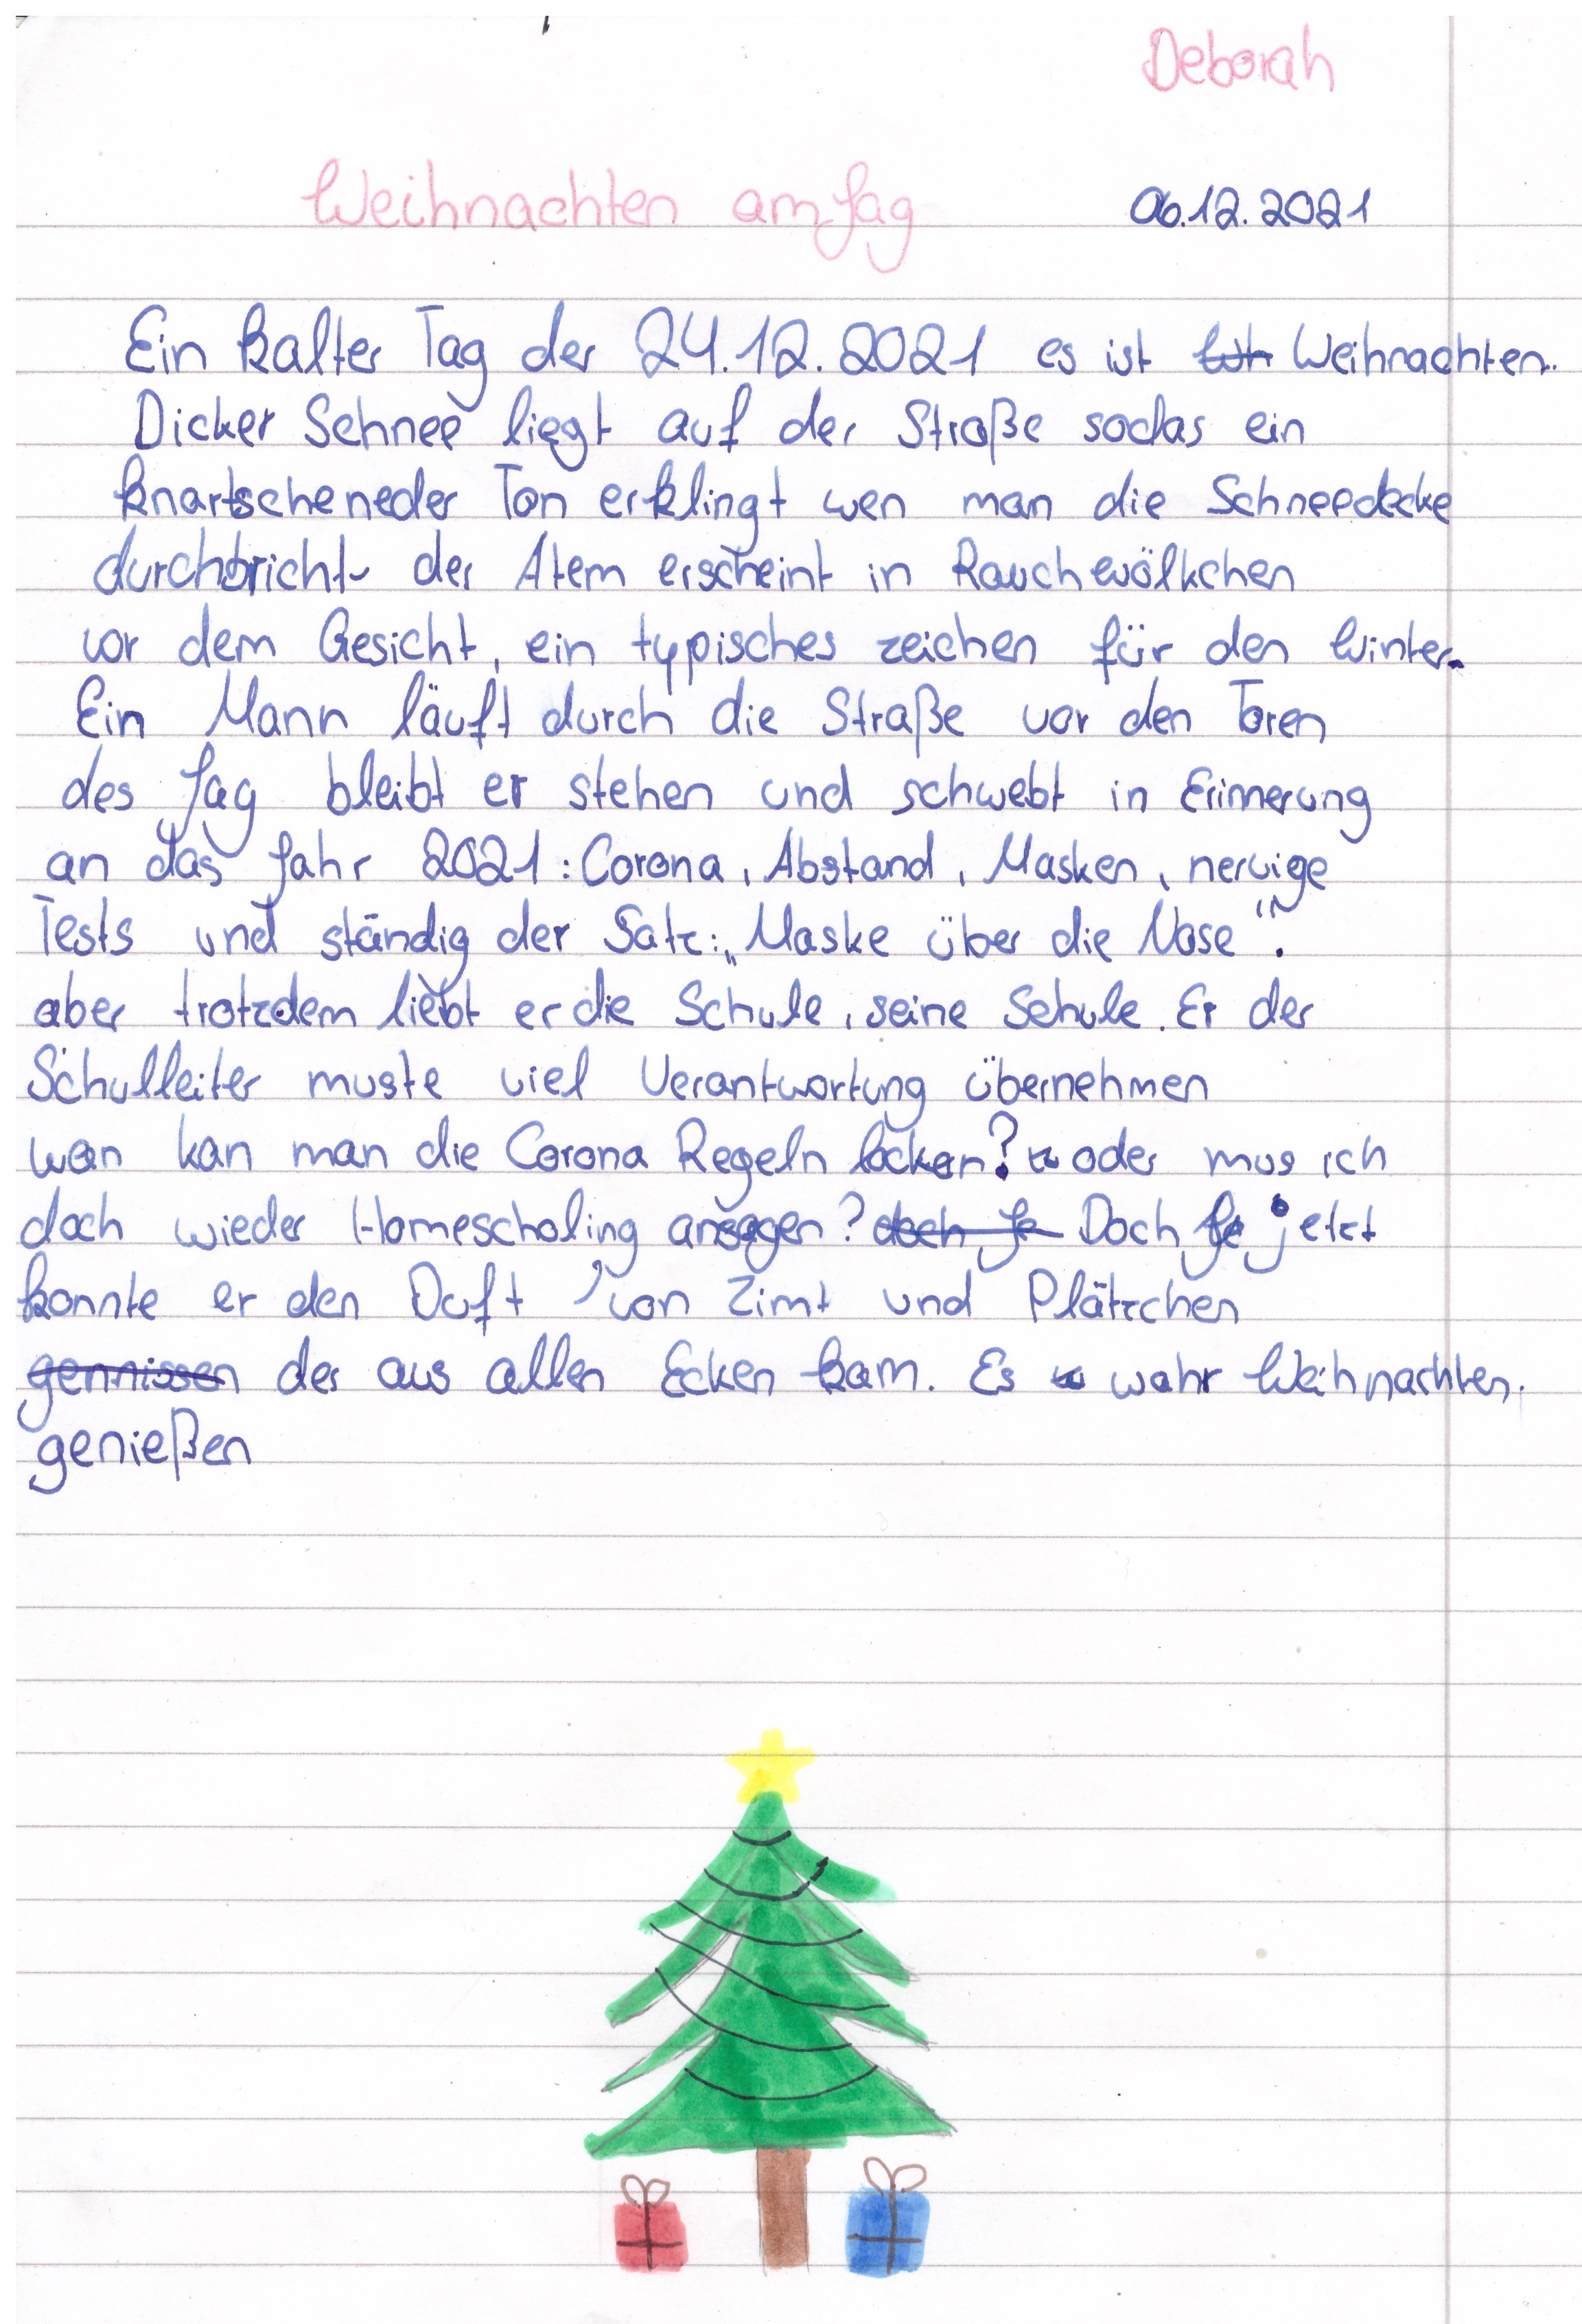 Deborah
Weihnachten am Jag
06.12.2021
Ein kalter Tag der 24.12.2021 es ist Weihnachten.
Dicker Schnee liegt auf der Straße sodas ein
knartscheneder Ton erklingt wen man die Schneedecke
durchbricht der Atem erscheint in Rauchewölkchen
vor dem Gesicht, ein typisches zeichen für den Winter.
Ein Mann läuft durch die Straße vor den Toren
des Jag bleibt er stehen und schwebt in Erinnerung
an das Jahr 2021: Corona, Abstand, Masken, nervige
Tests und ständig der Satz: „Maske über die Nase".
aber trotzdem liebt er die Schule, seine Schule. Er der
Schulleiter muste viel Verantwortung übernehmen
wan kan man die Corona Regeln locken? oder mus ich
doch wieder Homescholing ansagen? doch Je Doch jetzt
konnte er den Duft von Zimt und Plätzchen
gennissen der aus allen Ecken kam. Es wahr Weihnachten.
genießen